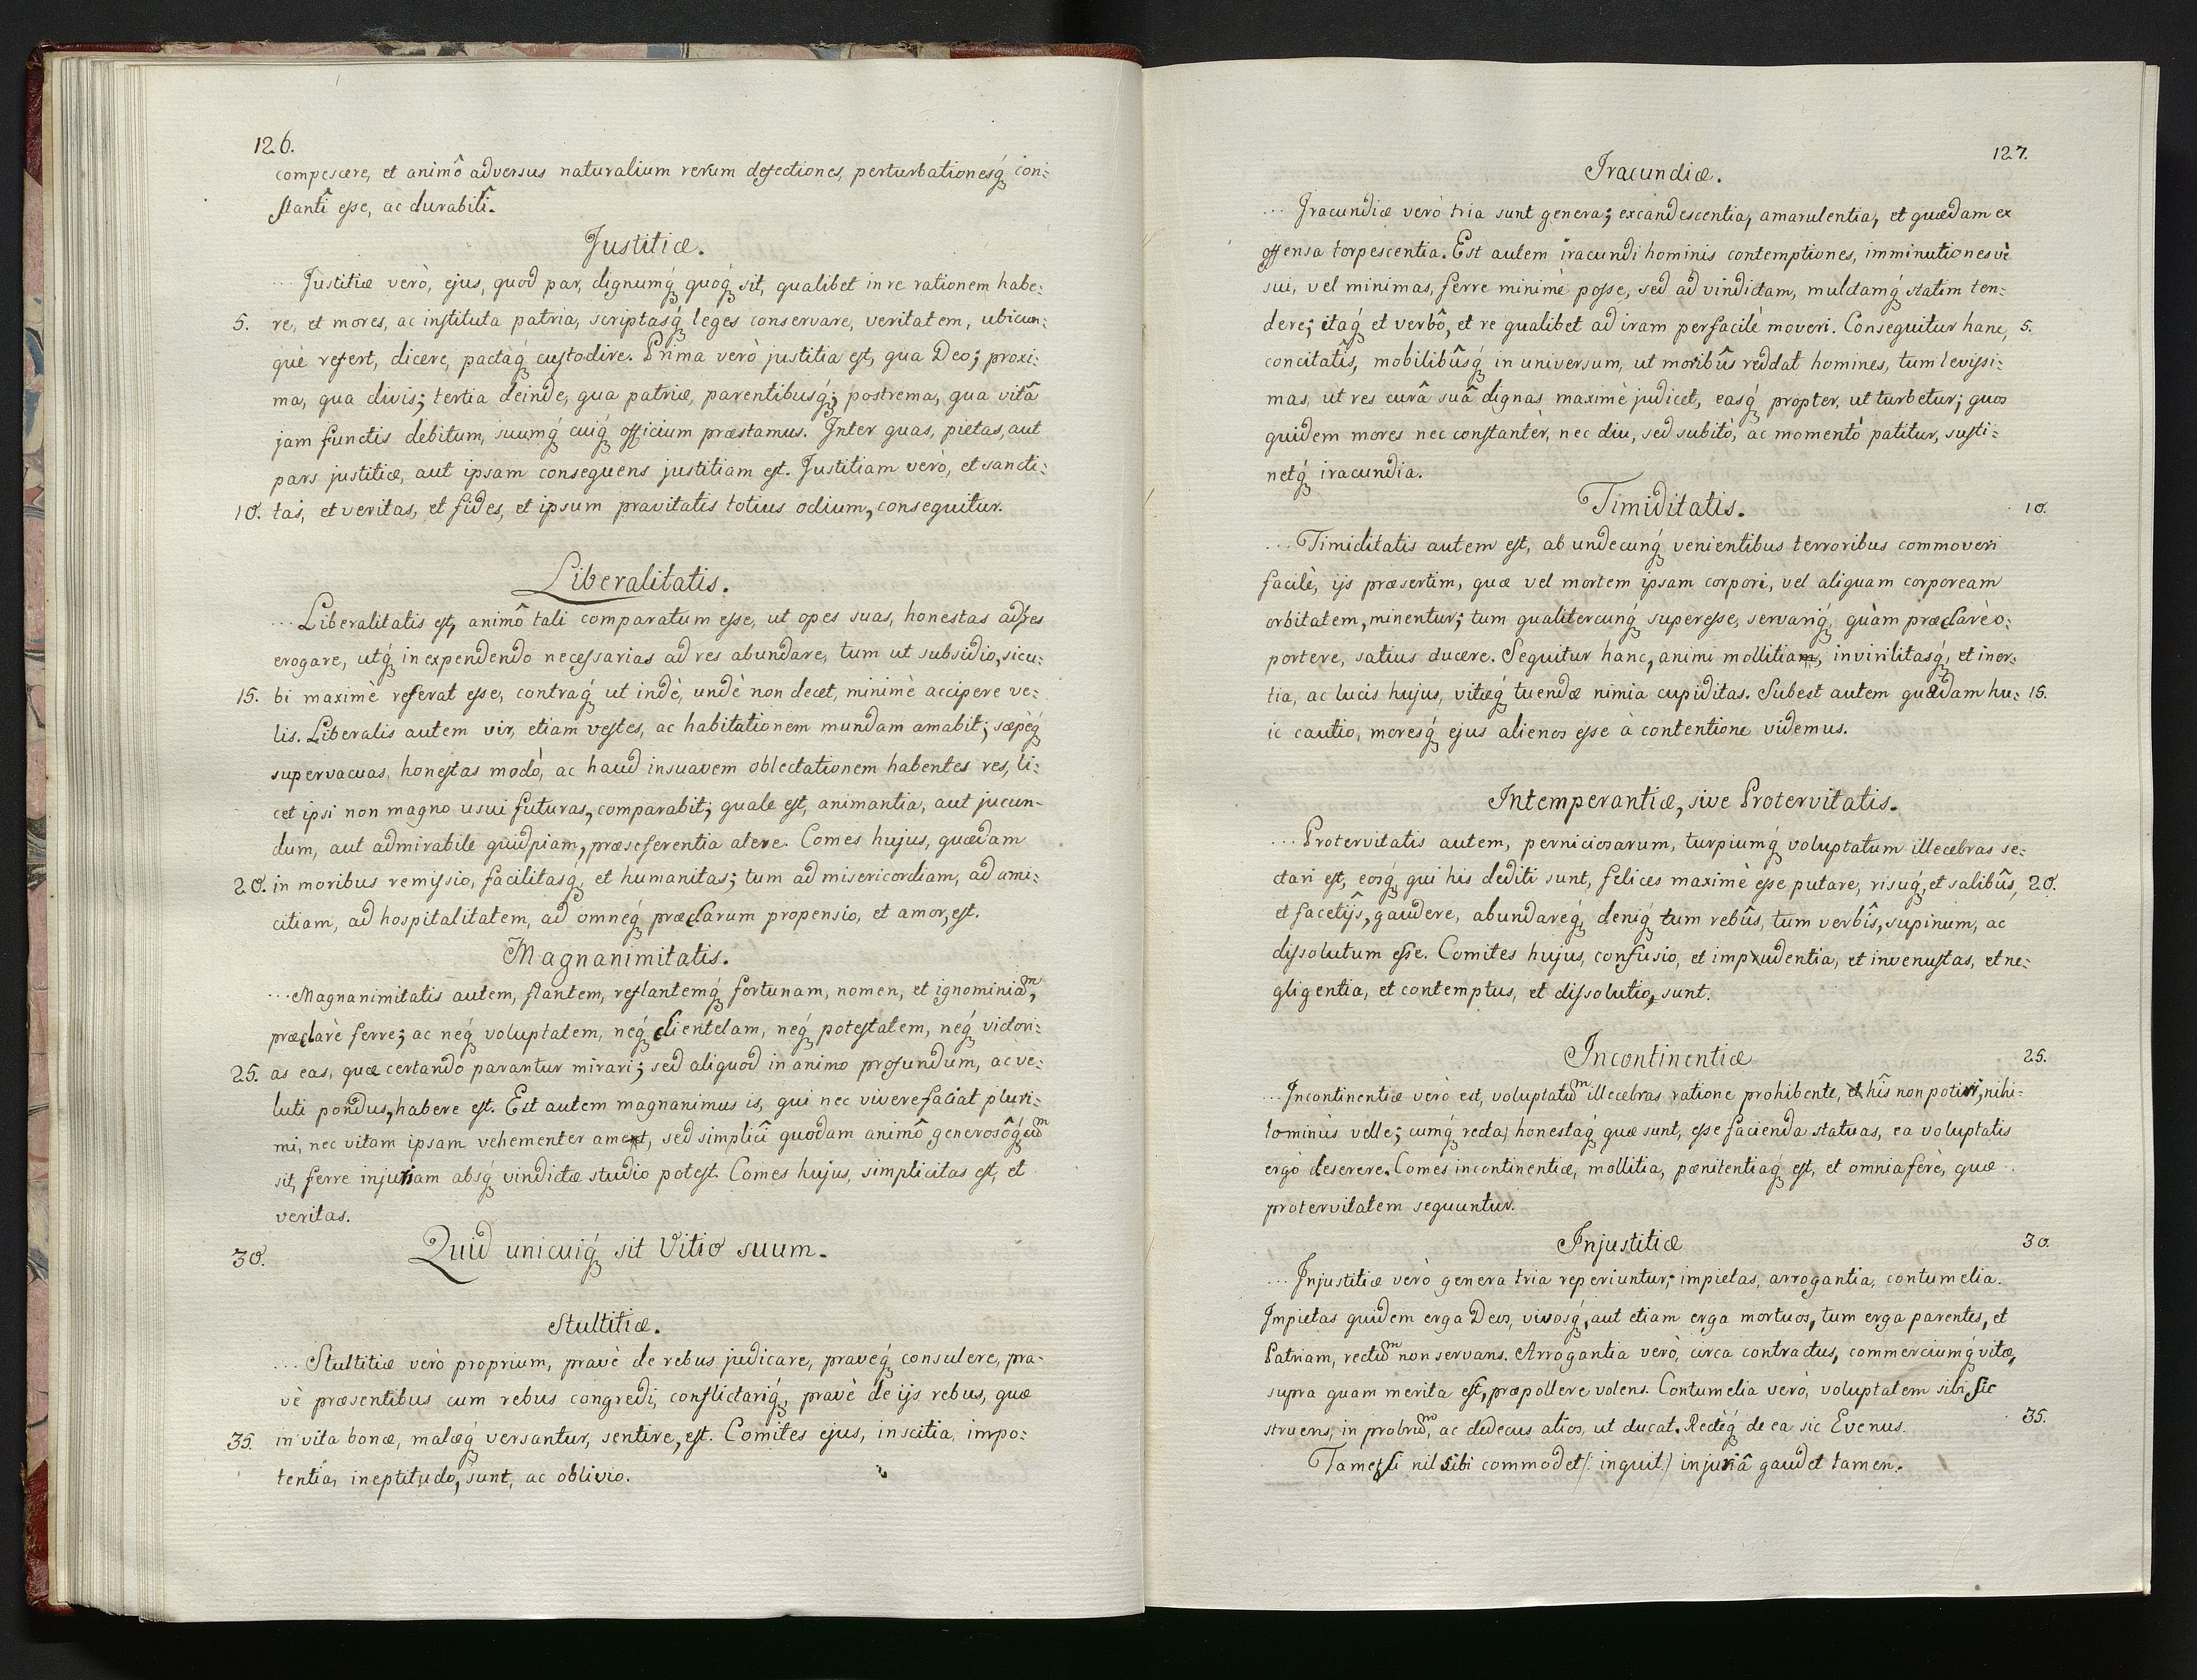 126.
compescere, et animô adversus naturalium rerum defectiones, perturbationesq́ꝫ con:
stantî esse, ac durabilî.
Justitiæ.
... Justitiæ verò, ejus, quod par, dignumq́ꝫ quoq́ꝫ sit, qualibet in re rationem habe:
5. re, et mores, ac instituta patria, scriptasq́ꝫ leges conservare, veritatem, ubicun:
què refert, dicere, pactáq́ꝫ custodire. Prima verò justitia est, qua Deo; proxi:
ma, qua divis; tertia deinde, qua patriæ, parentibusq́ꝫ; postrema, qua vitâ
jam functis debitum, suumq́ꝫ cuiq́ꝫ officium præstamus. Inter quas, pietas, aut
pars justitiæ, aut ipsam consequens justitiam est. Justitiam verò, et sancti:
10. tas, et veritas, et fides, et ipsum pravitatis totius odium, consequitur.
Liberalitatis.
... Liberalitatis est, animô tali comparatum esse, ut opes suas, honestas ad res
erogare, utq́ꝫ in expendendo necessarias ad res abundare, tum ut subsidio, sicu:
15. bi maximè referat esse, contraq́ꝫ ut indè, undè non decet, minimè accipere ve:
lis. Liberalis autem vir, etiam vestes, ac habitationem mundam amabit; sæpèq́ꝫ
supervacuas, honestas modò, ac haud insuavem oblectationem habentes res, li:
cet ipsi non magno usui futuras, comparabit; quale est, animantia, aut jucun-
dum, aut admirabile quidpiam, præseferentia alere. Comes hujus, quædam
20. in moribus remissio, facilitasq́ꝫ, et humanitas; tum ad misericordiam, ad ami:
citiam, ad hospitalitatem, ad omneq́ꝫ præclarum propensio, et amor, est.
Magnanimitatis.
... Magnanimitatis autem, flantem, reflantemq́ꝫ fortunam, nomen, et ignominiãᵐ,
præclarè ferre; ac neq́ꝫ voluptatem, neq́ꝫ clientelam, neq́ꝫ potestatem, neq́ꝫ victori:
25. as eas, quæ certando parantur mirari; sed aliquod in animo profundum, ac ve:
luti pondus, habere est. Est autem magnanimus is, qui nec vivere faciat pluri:
mi, nec vitam ipsam vehementer amet, sed simplicî quodam animô generosôq́ꝫ cũᵐ
sit, ferre injuriam absq́ꝫ vindictæ studio potest. Comes hujus, simplicitas est, et
veritas.
30. Quid unicuiq́ꝫ sit Vitio suum.
Stultitiæ.
... Stultitiæ verò proprium, pravè de rebus judicare, praveq́ꝫ consulere, pra-
vè præsentibus cum rebus congredi, conflictariq́ꝫ, pravè de ijs rebus, quæ
35. in vita bonæ, malæq́ꝫ versantur, sentire, est. Comites ejus, inscitia, impo:
tentia, ineptitudo, sunt, ac oblivio.
127.
Iracundiæ.
... Iracundiæ verò tria sunt genera; excandescentia, amarulentia, et quædam ex
offensa torpescentia. Est autem iracundi hominis contemptiones, imminutionesvè
sui, vel minimas, ferre minimè posse, sed ad vindictam, mulctamq́ꝫ statim ten:
dere; itaq́ꝫ et verbô, et re qualibet ad iram perfacilè moveri. Consequitur hanc, 5.
concitatîs, mobilibûsq́ꝫ in universum, ut moribûs reddat homines, tum levissi:
mas, ut res curâ suâ dignas maximè judicet, easq́ꝫ propter, ut turbetur; quos
quidem mores nec constantèr, nec diu, sed subitò, ac momentò patitur, susti:
netq́ꝫ iracundia.
Timiditatis. 10.
... Timiditatis autem est, ab undecunq́ꝫ venientibus terroribus commoveri
facilè, ijs præsertim, quæ vel mortem ipsam corpori, vel aliquam corpoream
orbitatem, minentur; tum qualitercunq́ꝫ superesse, servariq́ꝫ, quàm præclarè o:
portere, satius ducere. Sequitur hanc, animi mollitia, invirilitasq́ꝫ, et iner:
tia, ac lucis hujus, vitæq́ꝫ tuendæ nimia cupiditas. Subest autem quædam hu: 15.
ic cautio, moresq́ꝫ ejus alienos esse à contentione videmus.
Intemperantiæ, sive Protervitatis.
... Protervitatis autem, perniciosarum, turpiumq́ꝫ voluptatum illecebras se:
ctari est, eosq́ꝫ qui his dediti sunt, felices maximè esse putare, risuq́ꝫ, et salibûs, 20.
et facetijs, gaudere, abundareq́ꝫ, deniq́ꝫ tum rebûs, tum verbîs, supinum, ac
dissolutum esse. Comites hujus, confusio, et impudentia, et invenustas, et ne:
gligentia, et contemptus, et dissolutio, sunt.
Incontinentiæ 25.
... Incontinentiæ verò est, voluptatũᵐ illecebras ratione prohibente, hîs non potiri, nihi:
lominùs velle; cumq́ꝫ recta, honestaq́ꝫ quæ sunt, esse facienda statuas, ea voluptatis
ergò deserere. Comes incontinentiæ, mollitia, pænitentiaq́ꝫ est, et omnia ferè, quæ
protervitatem sequuntur.
Injustitiæ 30.
... Injustitiæ verò genera tria reperiuntur; impietas, arrogantia, contumelia.
Impietas quidem erga Deos, vivosq́ꝫ, aut etiam erga mortuos, tum erga parentes, et
Patriam, rectũᵐ non servans. Arrogantia verò, circa contractus, commerciumq́ꝫ vitæ,
supra quam merita est, præpollere volens. Contumelia verò, voluptatem sibi sic
struens, in probrũᵐ, ac dedecus alios, ut ducat. Rectèq́ꝫ de ea sic Evenus. 35.
Tametsi nil sibi commodet (: inquit:) injuriâ gaudet tamen.